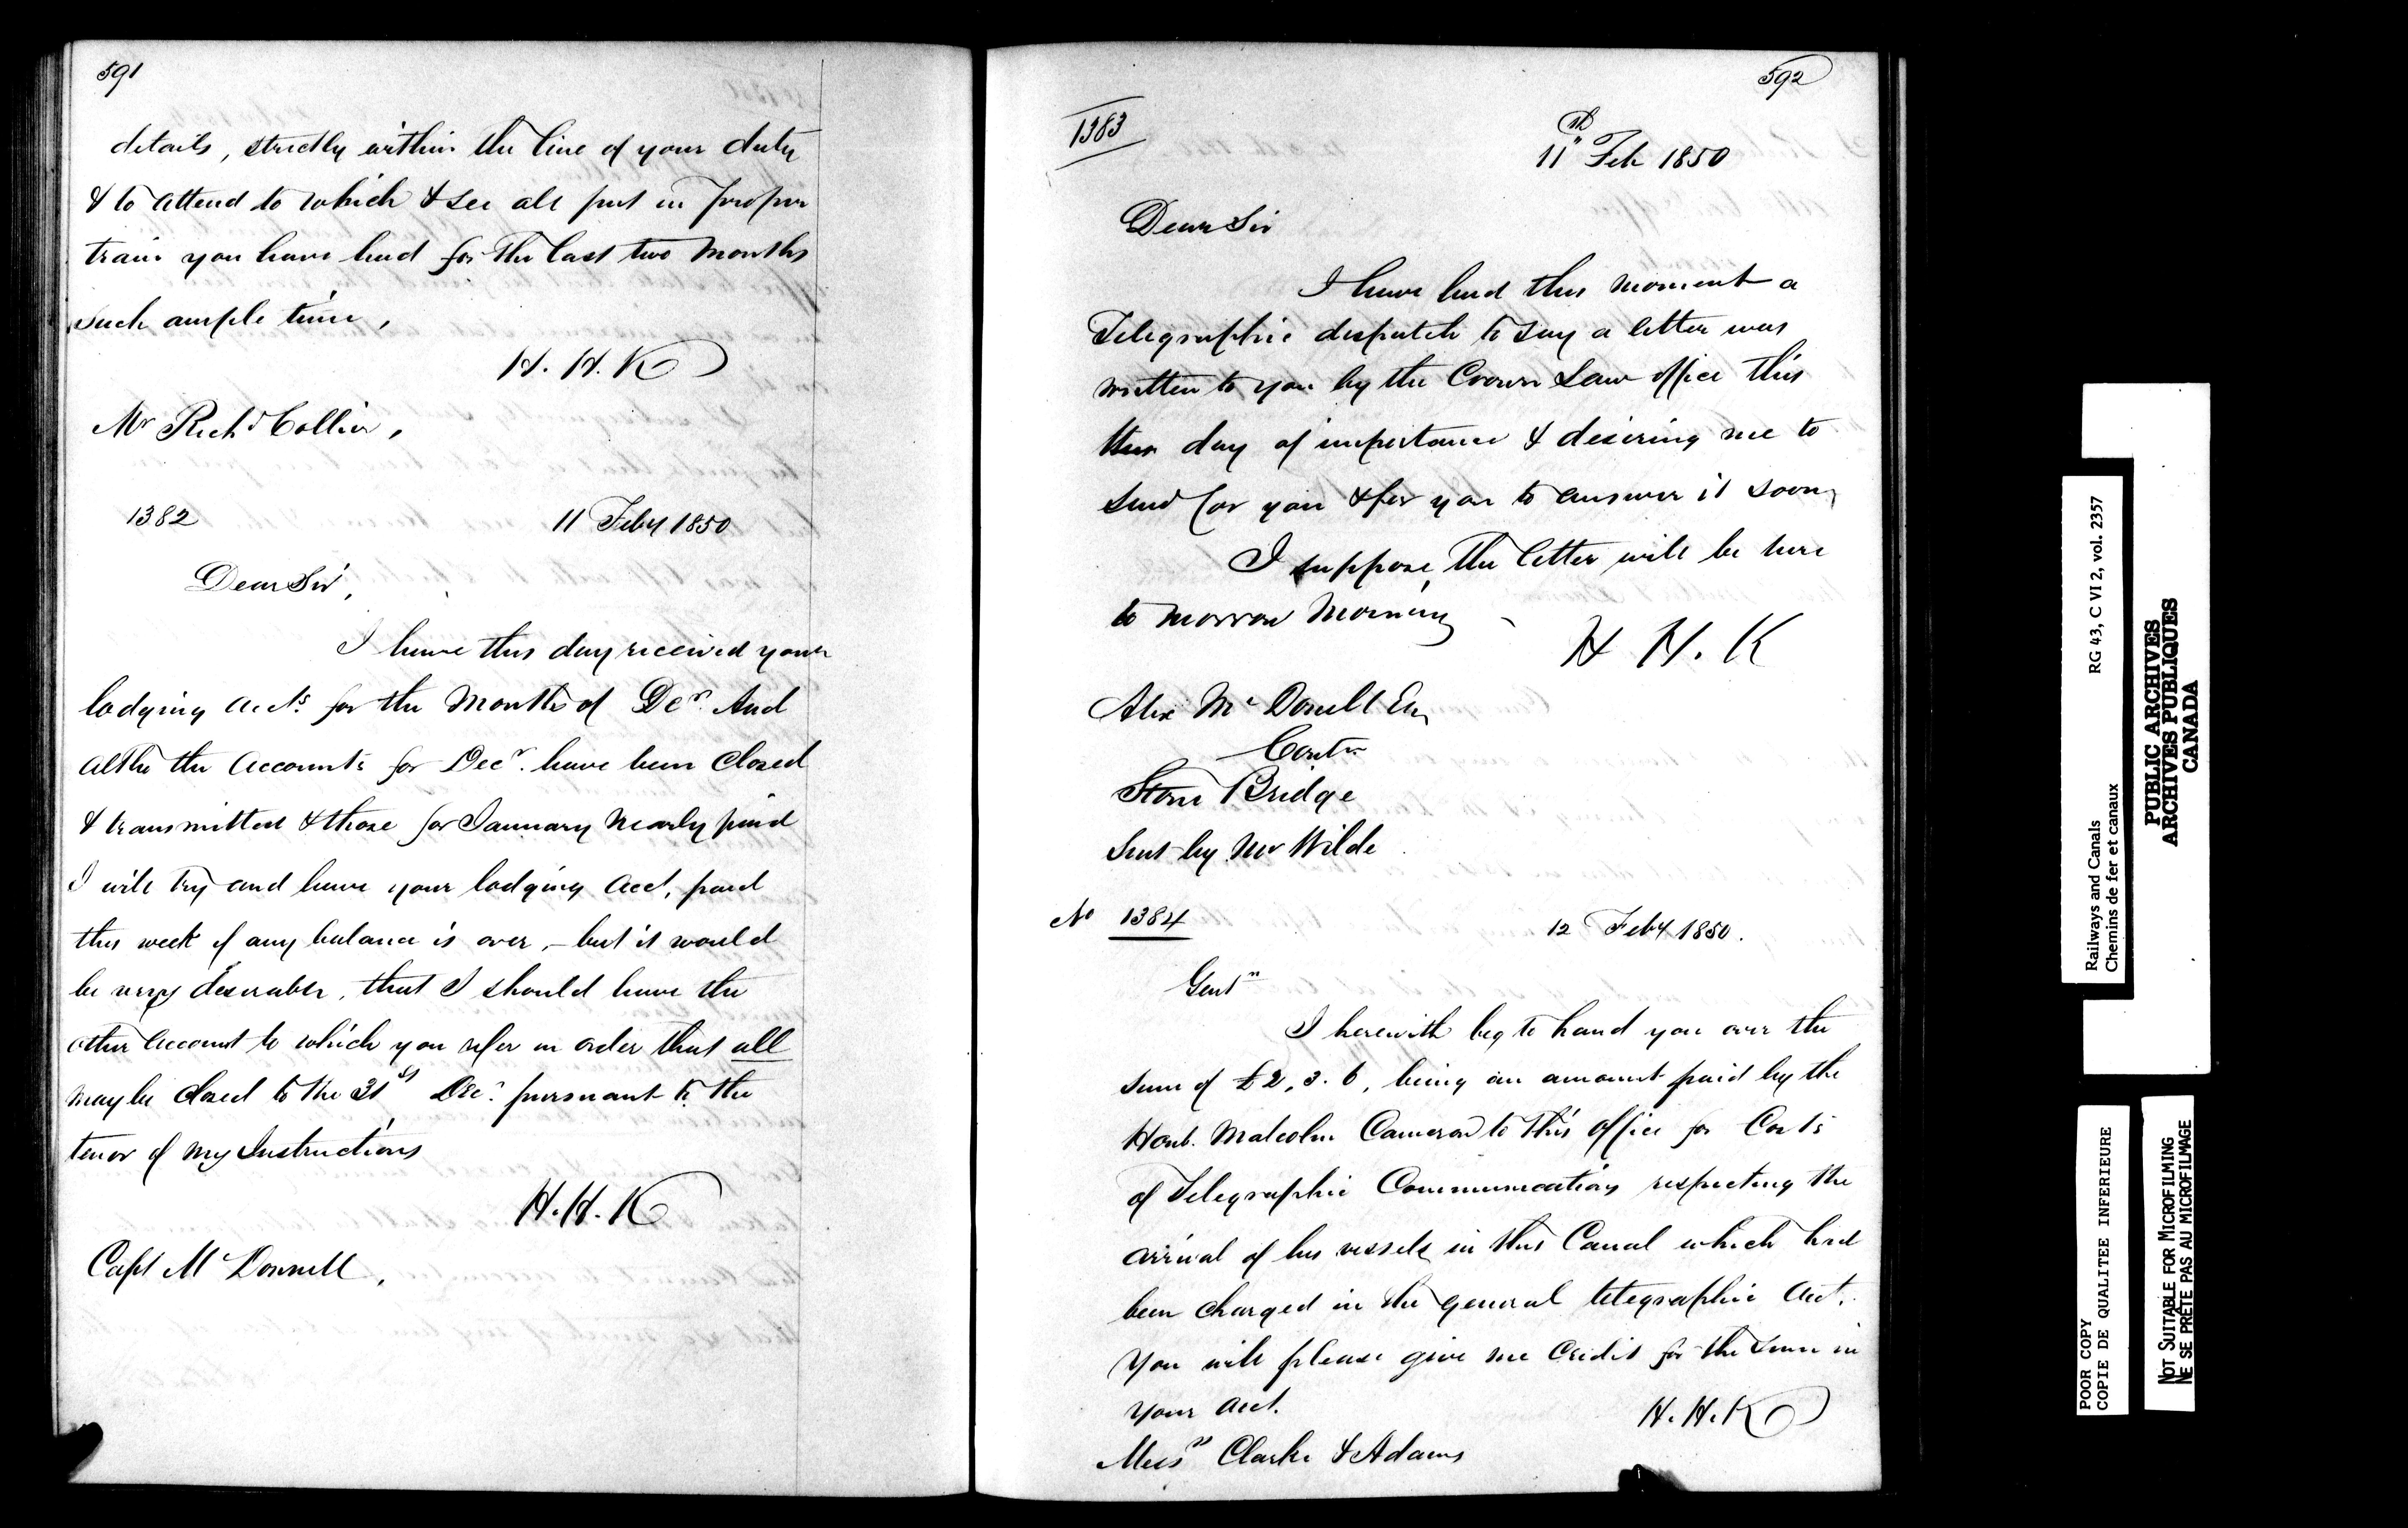 591
details, strictly within the line of your duty
& to attend to which & see all put in proper
train you have had for the last two Months
such ample time,
H. H. K
Mr Richd Collier,
1382 11 Feby 1850
Dear Sir,
I have this day received your
lodging accts. for the Months of Decr. And
altho the Accounts for Decr. have been Closed
& transmitted & those for January Nearly paid
I will try and have your lodging acct, paid
this week if any balance is over, - but it would
be very desirable, that I should have the
other Account to which you refer in order that all
may be closed to the 31st Decr. pursuant to the
tenor of my Instructions
H. H. K
Capt McDonnell,
592
1383
11th Feb 1850
Dear Sir
I have had this moment a
Telegraphic despatch to say a letter was
written to you by the Crown Law office this
this day of importance & desiring me to
send for you & for you to answer it soon,
I suppose, the letter will be here
to morrow Morning -
H H. K
Alex McDonell Esq
Contr
Stone Bridge
Sent by Mr Wilde
No 1384 12 Feby 1850.
Gentn
I herewith beg to hand you over the
sum of £2,3.6, being an amount paid by the
Honb. Malcolm Cameron to this office for Costs
of Telegraphic Communications respecting the
arrival of his vessels in this Canal which had
been charged in the general telegraphic acct.
You will please give me Credit for the same in
your acct.
H. H. K
Messrs Clarke & Adams
Railways and Canals RG 43, C VI 2, vol. 2357
Chemins de fer et canaux
PUBLIC ARCHIVES
ARCHIVES PUBLIQUES
CANADA
POOR COPY
COPIE DE QUALITEE INFERIEURE
NOT SUITABLE FOR MICROFILMING
NE SE PRÊTE PAS AU MICROFILMAGE